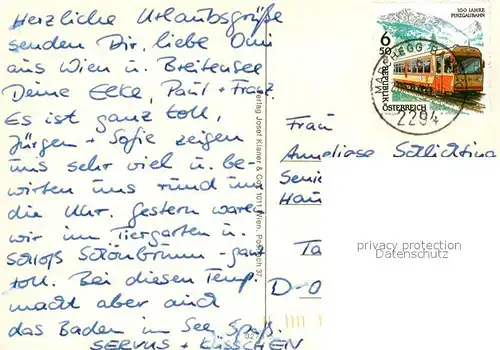 Herzliche Urlaubsgrüße
senden Dir, liebe Omi
aus Wien u. Breitensee
Deine Elke, Paul + Franz.
Es ist ganz toll,
Jürgen + Sofie zeigen
uns sehr viel u. be-
wirten uns rund um
die Uhr. Gestern waren
wir im Tiergarten u.
Schloß Schönbrunn - ganz
toll. Bei diesen Temp.
macht aber auch
das Baden im See Spaß.
SERVUS + KÜSSCHEN
Verlag Josef Klaner & Co, 1011 Wien, Postfach 37
100 JAHRE
PINZGAUBAHN
6
50
REPUBLIK
ÖSTERREICH
MARCHEGG
2294
Frau
Anneliese Schlichting
Senio
Hau
Ta
D-O
privacy protection
VERPACKUNG